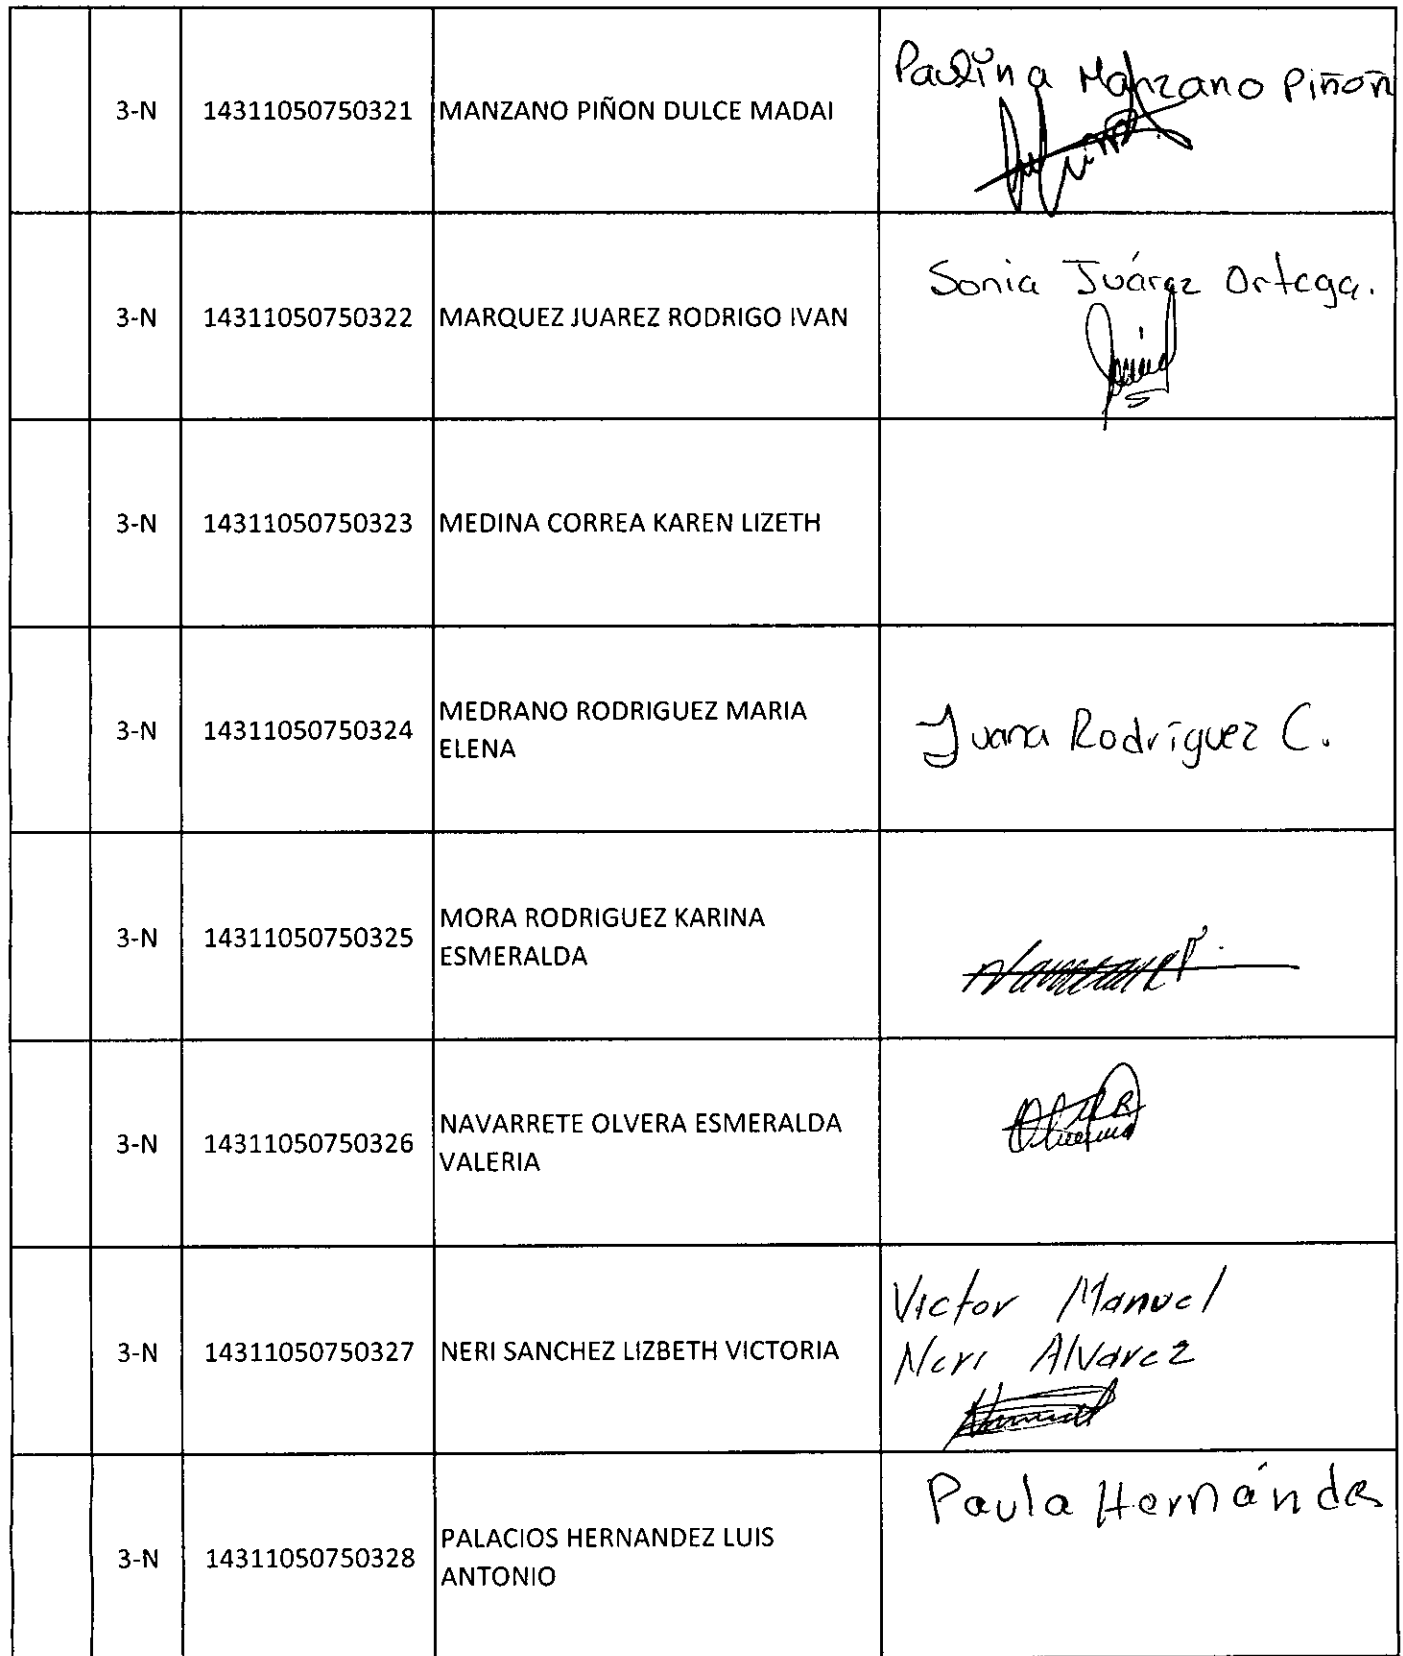 3-N 14311050750321 MANZANO PIÑON DULCE MADAI Paulina Manzano Piñon
3-N 14311050750322 MARQUEZ JUAREZ RODRIGO IVAN Sonia Juárez Ortega.
3-N 14311050750323 MEDINA CORREA KAREN LIZETH
3-N 14311050750324 MEDRANO RODRIGUEZ MARIA
ELENA
Juana Rodríguez C.
3-N 14311050750325 MORA RODRIGUEZ KARINA
ESMERALDA
3-N 14311050750326 NAVARRETE OLVERA ESMERALDA
VALERIA
3-N 14311050750327 NERI SANCHEZ LIZBETH VICTORIA
Victor Manuel
Neri Alvarez
3-N 14311050750328 PALACIOS HERNANDEZ LUIS
ANTONIO
Paula Hernández